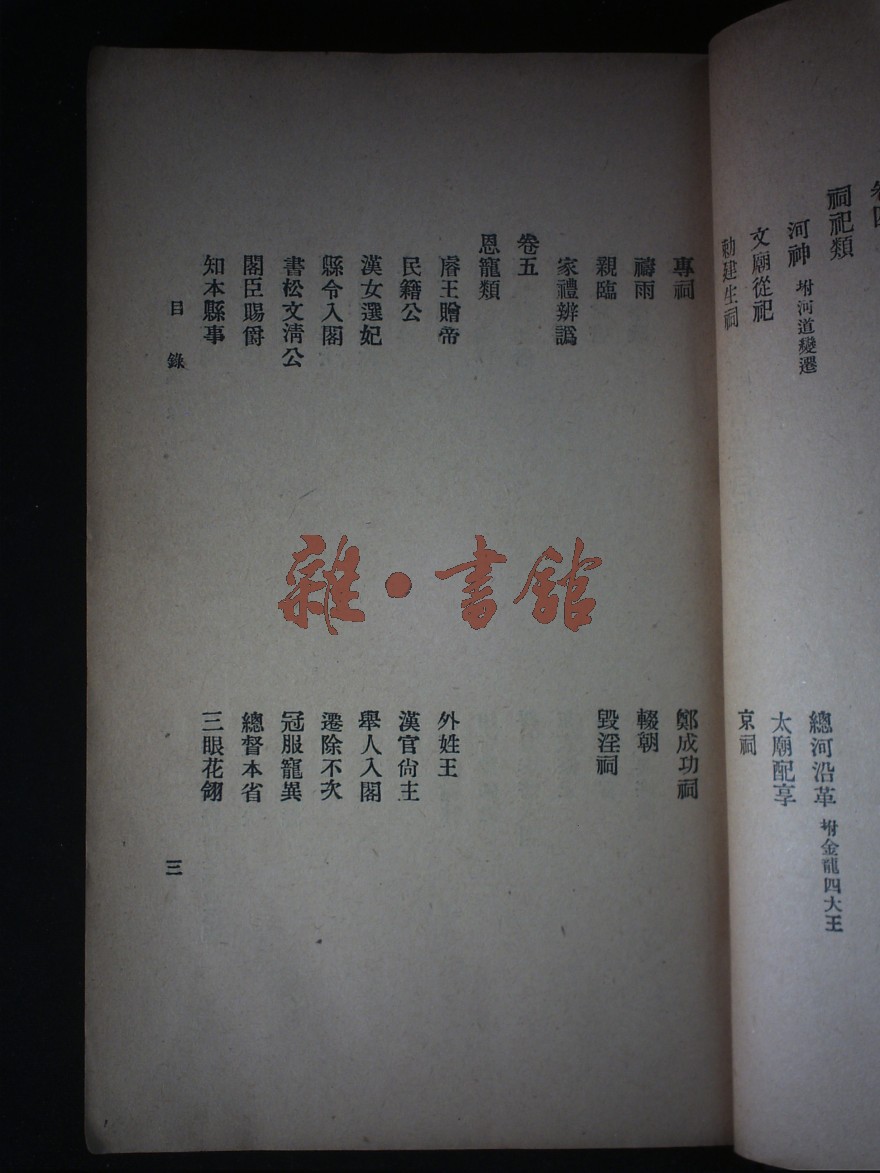 卷四
祠祀類
河神 坿河道變遷
總河沿革 坿金龍四大王
文廟從祀
太廟配享
勅建生祠
京祠
專祠
鄭成功祠
禱雨
輟朝
親臨
毀淫祠
家禮辨譌
卷五
恩寵類
睿王贈帝
外姓王
民籍公
漢官尙主
漢女選妃
舉人入閣
縣令入閣
遷除不次
書松文淸公
冠服寵異
閣臣賜爵
總督本省
知本縣事
三眼花翎
目錄
三
雜·書館